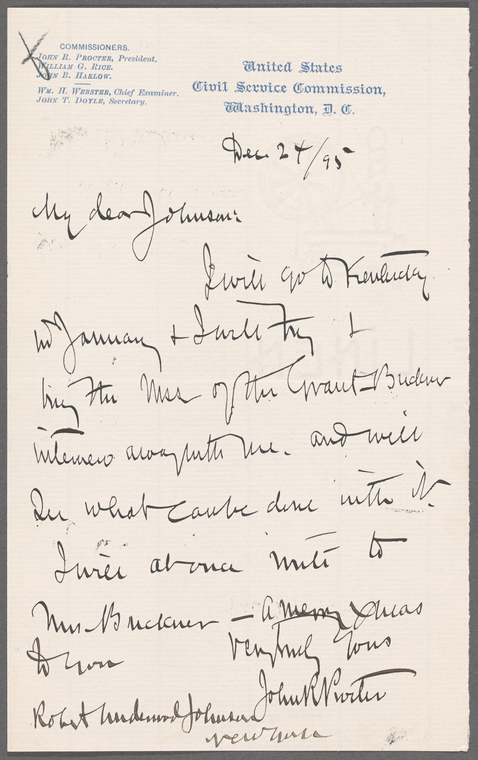 COMMISSIONERS.
JOHN R. PROCTER, President.
WILLIAM G. RICE.
JOHN B. HARLOW.
WM. H. WEBSTER, Chief Examiner.
JOHN T. DOYLE, Secretary.
United States
Civil Service Commission,
Washington, D. C.
Dec 24/95
My dear Johnson:
I will go to Kentucky
in January & I will try &
bring the Mss of the Grant-Buckner
interview away with me. and will
see what can be done with it.
I will at once write to
Mrs. Buckner - A merry Xmas
to you
Very truly yours
John R Procter
Robert Underwood Johnson
New York